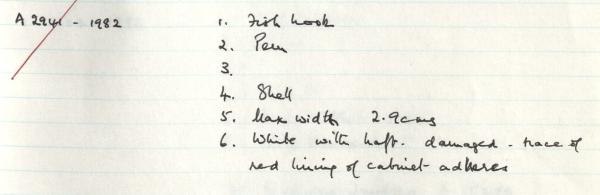 A 2941 - 1982 1. Fish hook
2. Peru
3.
4. Shell
5. Max width 2.9cms
6. White with haft. damaged - trace of
red lining of cabinet adheres